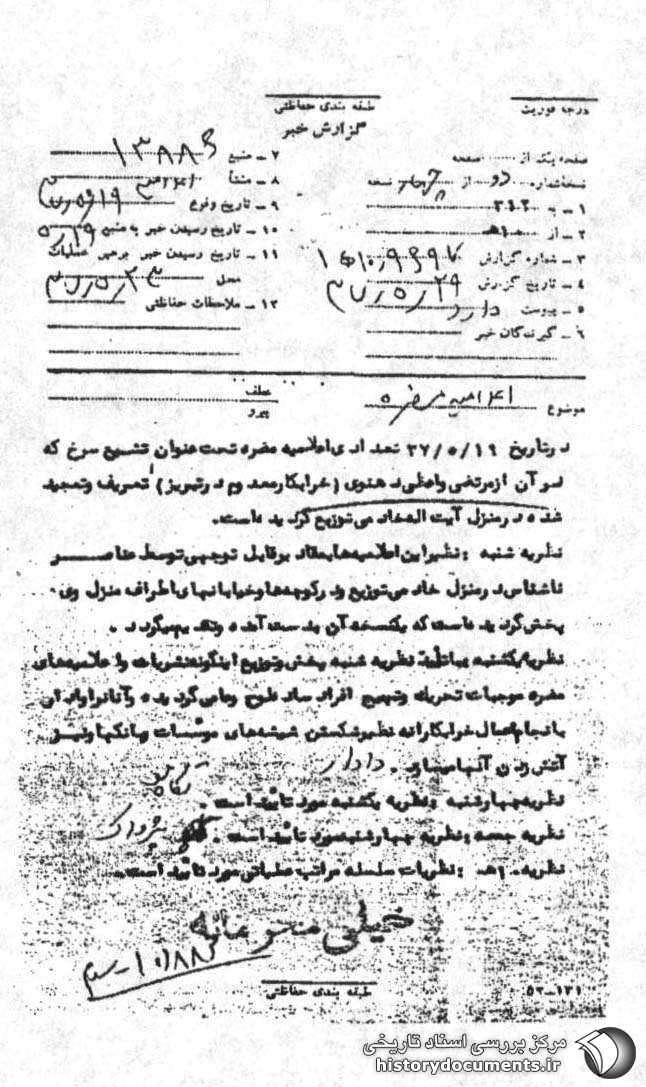 درجه فوریت
طبقه بندی حفاظتی
گزارش خبر
صفحه یک از صفحه
نسخه شماره دو از چهار نسخه
۱ - به ۳۱۲
۲ - از ۱۰ ه‍
۳ - شماره گزارش
۴ - تاریخ گزارش ۳۷/۵/۲۹
۵ - پیوست دارد
۶ - گیرندگان خبر
۷ - منبع ۱۳۸۸۳
۸ - منشأ اعلامیه
۹ - تاریخ وقوع ۳۷/۵/۱۹
۱۰ - تاریخ رسیدن خبر به منبع ۵/۱۹
۱۱ - تاریخ رسیدن خبر برهبر عملیات
محل ۳۷/۵/۲۳
۱۲ - ملاحظات حفاظتی
موضوع اعلامیه مضره
عطف
پیرو
در تاریخ ۳۷/۵/۱۹ تعدادی اعلامیه مضره تحت عنوان تشیع سرخ که
در آن از مرتضی واعظی دهنوی (خرابکار معدوم در تبریز) تعریف و تمجید
شده در منزل آیت اله خادمی توزیع گردیده است.
نظریه شنبه : نظیر این اعلامیه ها بمقادیر قابل توجهی توسط عناصر
ناشناس در منزل خادمی توزیع و در کوچه ها و خیابانهای اطراف منزل وی
پخش گردیده است که یکنسخه آن بدست آمده و تقدیم میگردد .
نظریه یکشنبه : با تأیید نظریه شنبه پخش و توزیع اینگونه نشریات و اعلامیه های
مضره موجبات تحریک و تهییج افراد ساده لوح و عامی گردیده و آنانرا وادار
بانجام اعمال خرابکارانه نظیر شکستن شیشه های موسسات و بانکها و نیز
آتش زدن آنها مینماید . دادار
نظریه چهارشنبه : نظریه یکشنبه مورد تائید است .
نظریه جمعه : نظریه چهارشنبه مورد تائید است .
نظریه ۱۰ ه‍ : نظریات سلسله مراتب عملیاتی مورد تائید است .
خیلی محرمانه
طبقه بندی حفاظتی
۵۲-۱۲۱
مرکز بررسی اسناد تاریخی
historydocuments.ir